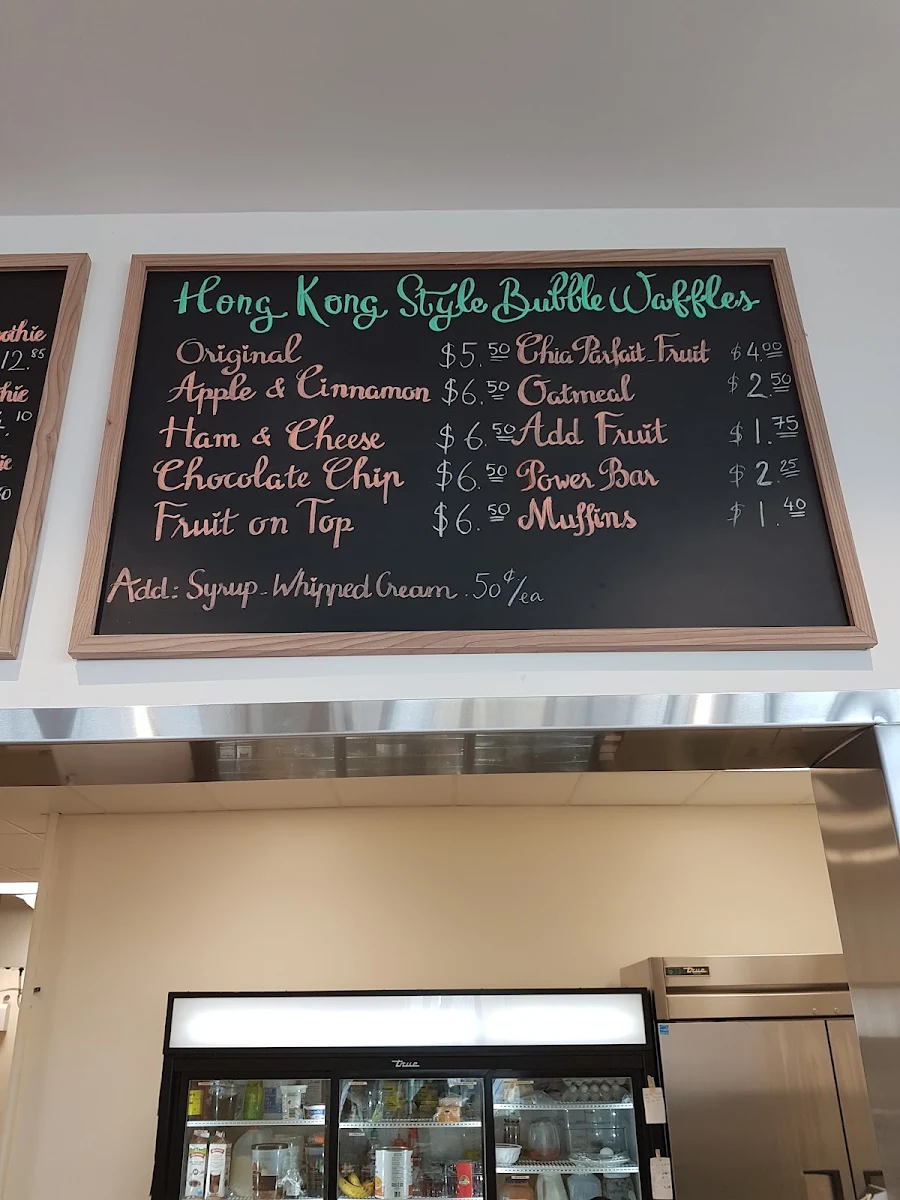 Hong Kong Style Bubble Waffles
Original $5.50
Apple & Cinnamon $6.50
Ham & Cheese $6.50
Chocolate Chip $6.50
Fruit on Top $6.50
Chia Parfait-Fruit $4.00
Oatmeal $2.50
Add Fruit $1.75
Power Bar $2.25
Muffins $1.40
Add: Syrup-Whipped Cream .50¢/ea
12.85
10
True
True